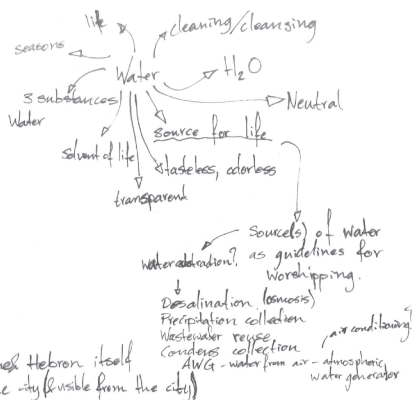 life
cleaning/cleansing
seasons
Water
H₂O
3 substances
Water
Neutral
source for life
solvent of life
tasteless, odorless
transparent
Source(s) of water
as guidelines for
worshipping.
water
Desalination (osmosis)
Precipitation collection
Wastewater reuse
Condens collection
air conditioning?
AWG - water from air - atmospheric
water generator
Hebron itself
city (& visible from the city)